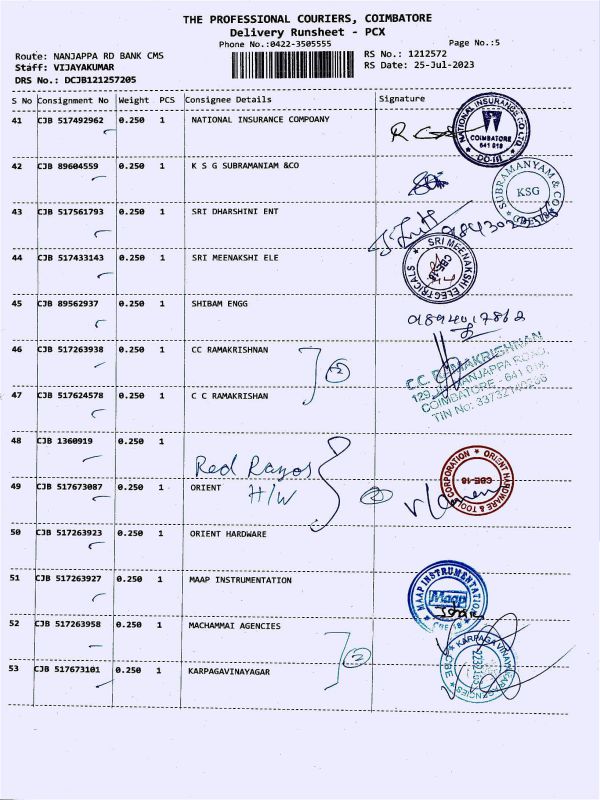 THE PROFESSIONAL COURIERS, COIMBATORE
Delivery Runsheet - PCX
Phone No.:0422-3505555
Page No.:5
Route: NANJAPPA RD BANK CMS
RS No.: 1212572
Staff: VIJAYAKUMAR
RS Date: 25-Jul-2023
DRS No.: DCJB121257205
S No Consignment No Weight PCS Consignee Details Signature
41 CJB 517492962 0.250 1 NATIONAL INSURANCE COMPOANY
NATIONAL INSURANCE CO LTD.
COIMBATORE
641 018
42 CJB 89604559 0.250 1 K S G SUBRAMANIAM &CO
SUBRAMANYAM & CO
KSG
43 CJB 517561793 0.250 1 SRI DHARSHINI ENT
44 CJB 517433143 0.250 1 SRI MEENAKSHI ELE
SRI MEENAKSHI ELECTRICALS
CBE-18
45 CJB 89562937 0.250 1 SHIBAM ENGG
46 CJB 517263938 0.250 1 CC RAMAKRISHNAN
2
C.C. RAMAKRISHNAN
129, NANJAPPA ROAD,
COIMBATORE - 641 018.
47 CJB 517624578 0.250 1 C C RAMAKRISHAN
TIN No: 33732140266
48 CJB 1360919 0.250 1
Red Rayos
H/W
49 CJB 517673087 0.250 1 ORIENT
ORIENT HARDWARE & TOOL CORPORATION
CBE-18
50 CJB 517263923 0.250 1 ORIENT HARDWARE
51 CJB 517263927 0.250 1 MAAP INSTRUMENTATION
MAAP INSTRUMENTATION
Maap
CBE 18
52 CJB 517263958 0.250 1 MACHAMMAI AGENCIES
2
53 CJB 517673101 0.250 1 KARPAGAVINAYAGAR